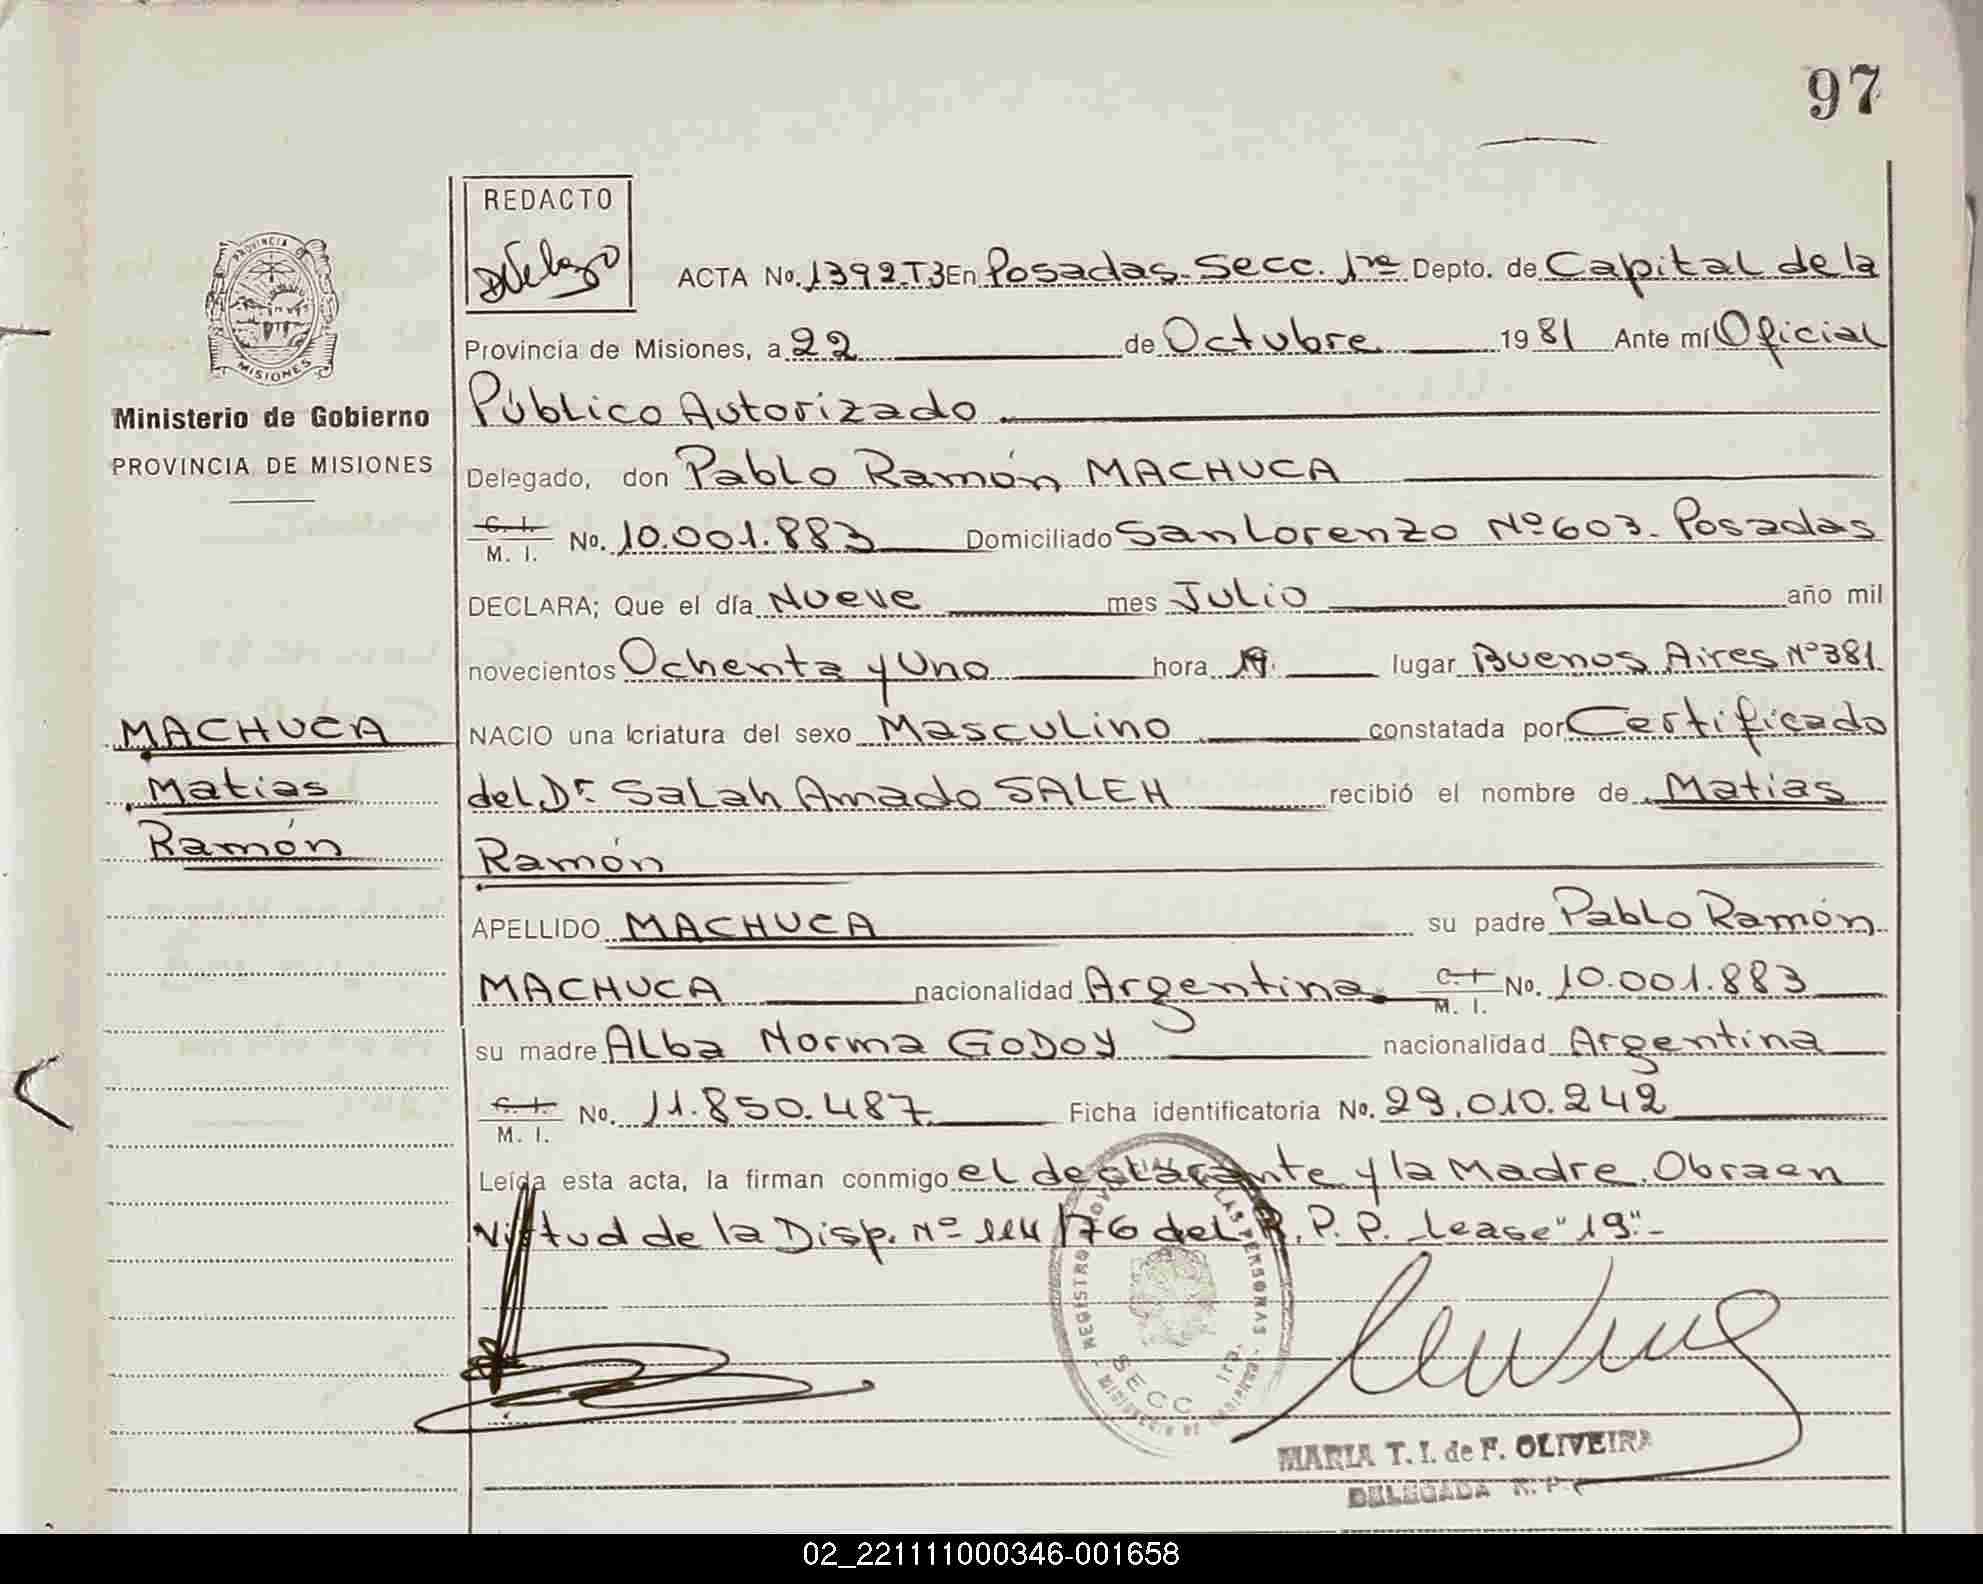 97
REDACTO
ACTA No. 1392.T3 En Posadas. Secc. 1ra Depto. de Capital de la
Provincia de Misiones, a 22 de Octubre 1981 Ante mí Oficial
Público Autorizado
Delegado, don Pablo Ramón MACHUCA
C. I.
M. I. No. 10.001.883 Domiciliado San Lorenzo Nº 603. Posadas
DECLARA; Que el día Nueve mes Julio año mil
novecientos Ochenta y Uno hora lugar Buenos Aires Nº 381
NACIO una criatura del sexo Masculino constatada por Certificado
del Dr. Salah Amado SALEH recibió el nombre de Matias
Ramón
APELLIDO MACHUCA su padre Pablo Ramón
MACHUCA nacionalidad Argentina C. I.
M. I. No. 10.001.883
su madre Alba Norma GODOY nacionalidad Argentina
C. I.
M. I. No. 11.850.487 Ficha identificatoria No. 29.010.242
Leída esta acta, la firman conmigo el declarante y la Madre. Obra en
Virtud de la Disp. Nº 114/76 del R. P. P. Lease "19".-
PROVINCIA DE
MISIONES
Ministerio de Gobierno
PROVINCIA DE MISIONES
MACHUCA
Matias
Ramón
REGISTRO PROVINCIAL DE LAS PERSONAS
SECC 1ra.
MINISTERIO DE GOBIERNO
MARIA T. I. de F. OLIVEIRA
DELEGADA R. P.
02_221111000346-001658